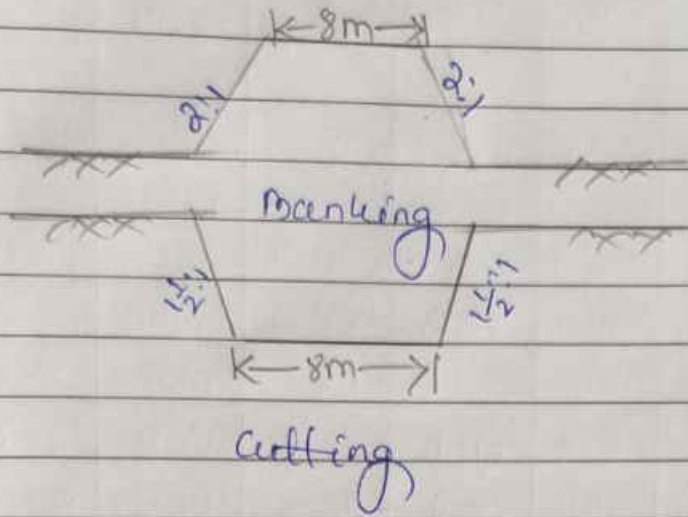 8m
2:1 2:1
Banking
1½:1 1½:1
8m
Cutting